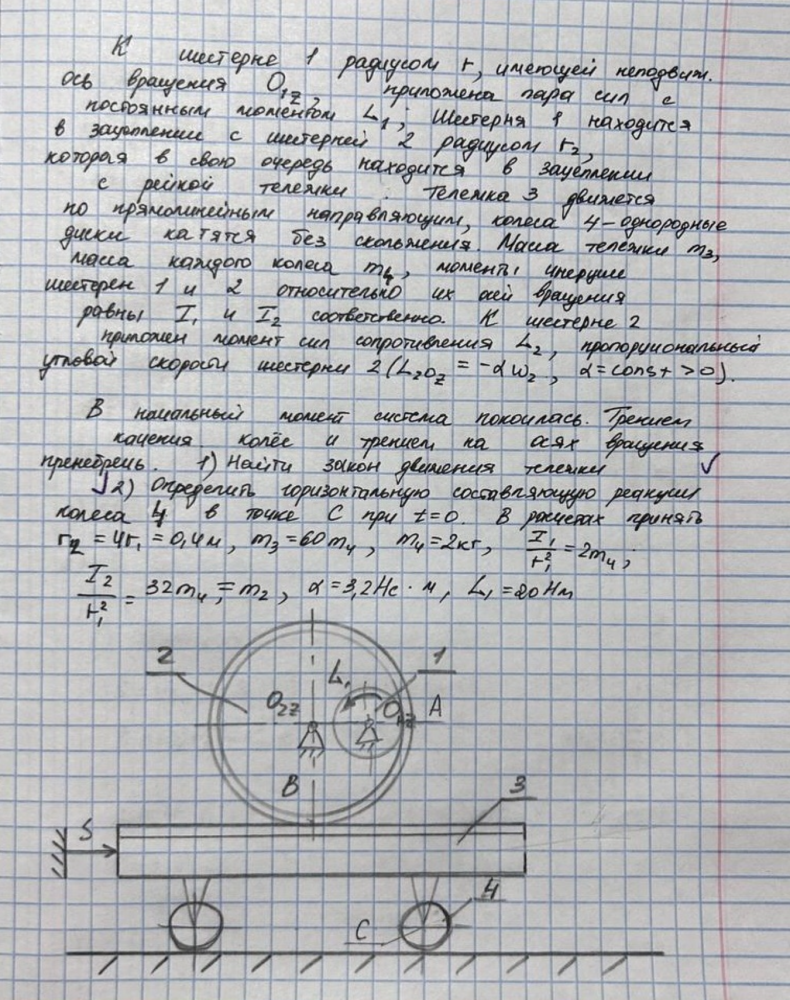 К шестерне 1 радиусом r, имеющей неподвиж.
ось вращения O₁z, приложена пара сил с
постоянным моментом L₁; Шестерня 1 находится
в зацеплении с шестерней 2 радиусом r₂,
которая в свою очередь находится в зацеплении
с рейкой тележки. Тележка 3 движется
по прямолинейным направляющим, колеса 4-однородные
диски катятся без скольжения. Масса тележки m₃,
масса каждого колеса m₄, моменты инерции
шестерен 1 и 2 относительно их осей вращения
равны I₁ и I₂ соответственно. К шестерне 2
приложен момент сил сопротивления L₂, пропорциональный
угловой скорости шестерни 2 (L₂₀z = -αω₂, α=const >0).
В начальный момент система покоилась. Трением
качения колёс и трением на осях вращения
пренебречь. 1) Найти закон движения тележки ✓
2) Определить горизонтальную составляющую реакции
колеса 4 в точке C при t=0. В расчетах принять
r₂ = 4r₁ = 0,4м, m₃=60m₄, m₄=2кг, I₁/r₁² = 2m₄;
I₂/r₁² = 32m₄ = m₂, α=3,2Нс·м, L₁=20Нм
2
L₁
1
O₂z
O₁z
A
B
3
S
4
C